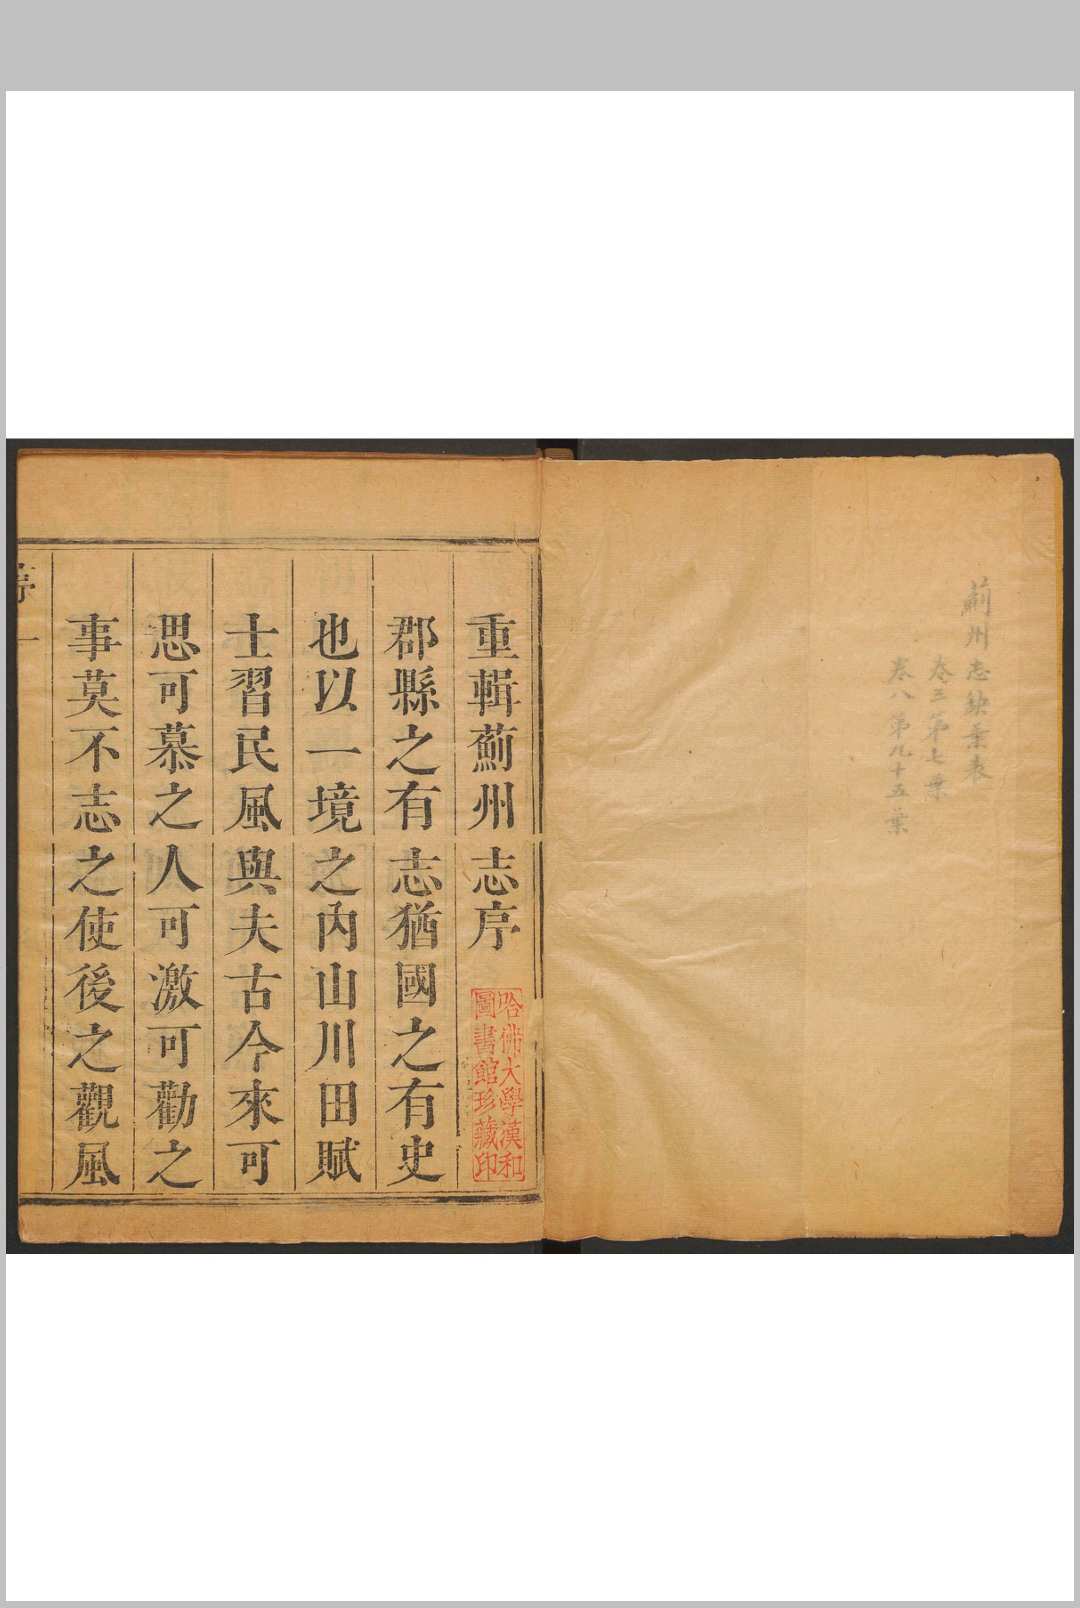 薊州志缺葉表
卷三第七葉
卷八第九十五葉
重輯薊州志序
哈佛大學漢和
圖書館珍藏印
郡縣之有志猶國之有史
也以一境之內山川田賦
士習民風與夫古今來可
思可慕之人可激可勸之
事莫不志之使後之觀風
序
一